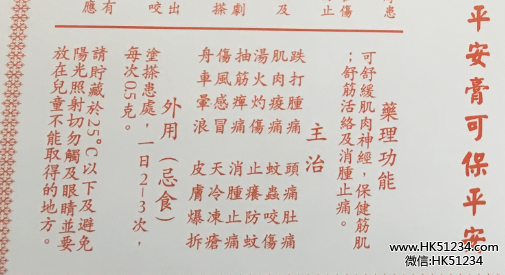 平安膏可保平安
患
傷
止
及
劇
搽
出
有
應
藥理功能
可舒緩肌肉神經,保健筋肌
;舒筋活絡及消腫止痛。
主治
跌打腫痛 頭痛肚痛
肌肉痠痛 蚊蟲咬傷
湯火灼傷 止癢防蚊
抽筋痺痛 消腫止痛
傷風感冒 天冷凍瘡
舟車暈浪 皮膚爆拆
外用(忌食)
塗搽患處,一日2-3次,
每次0.5克。
請貯藏於25°C以下及避免
陽光照射切勿觸及眼睛並要
放在兒童不能取得的地方。
www.HK51234.com
微信:HK51234